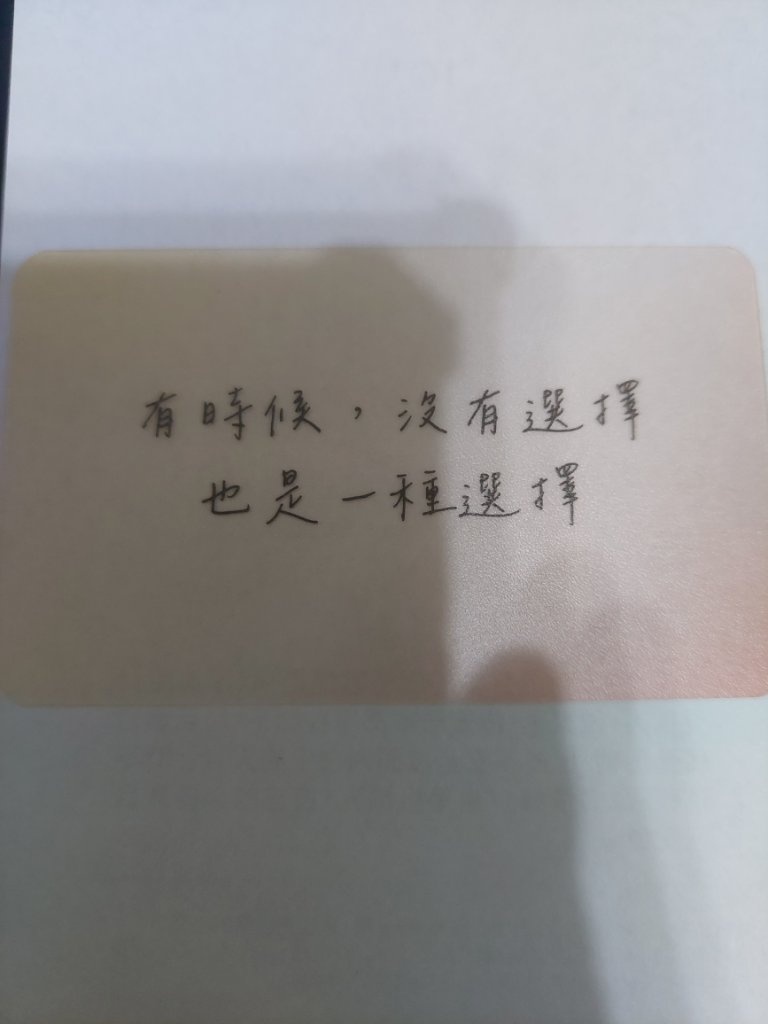 有時候，沒有選擇
也是一種選擇